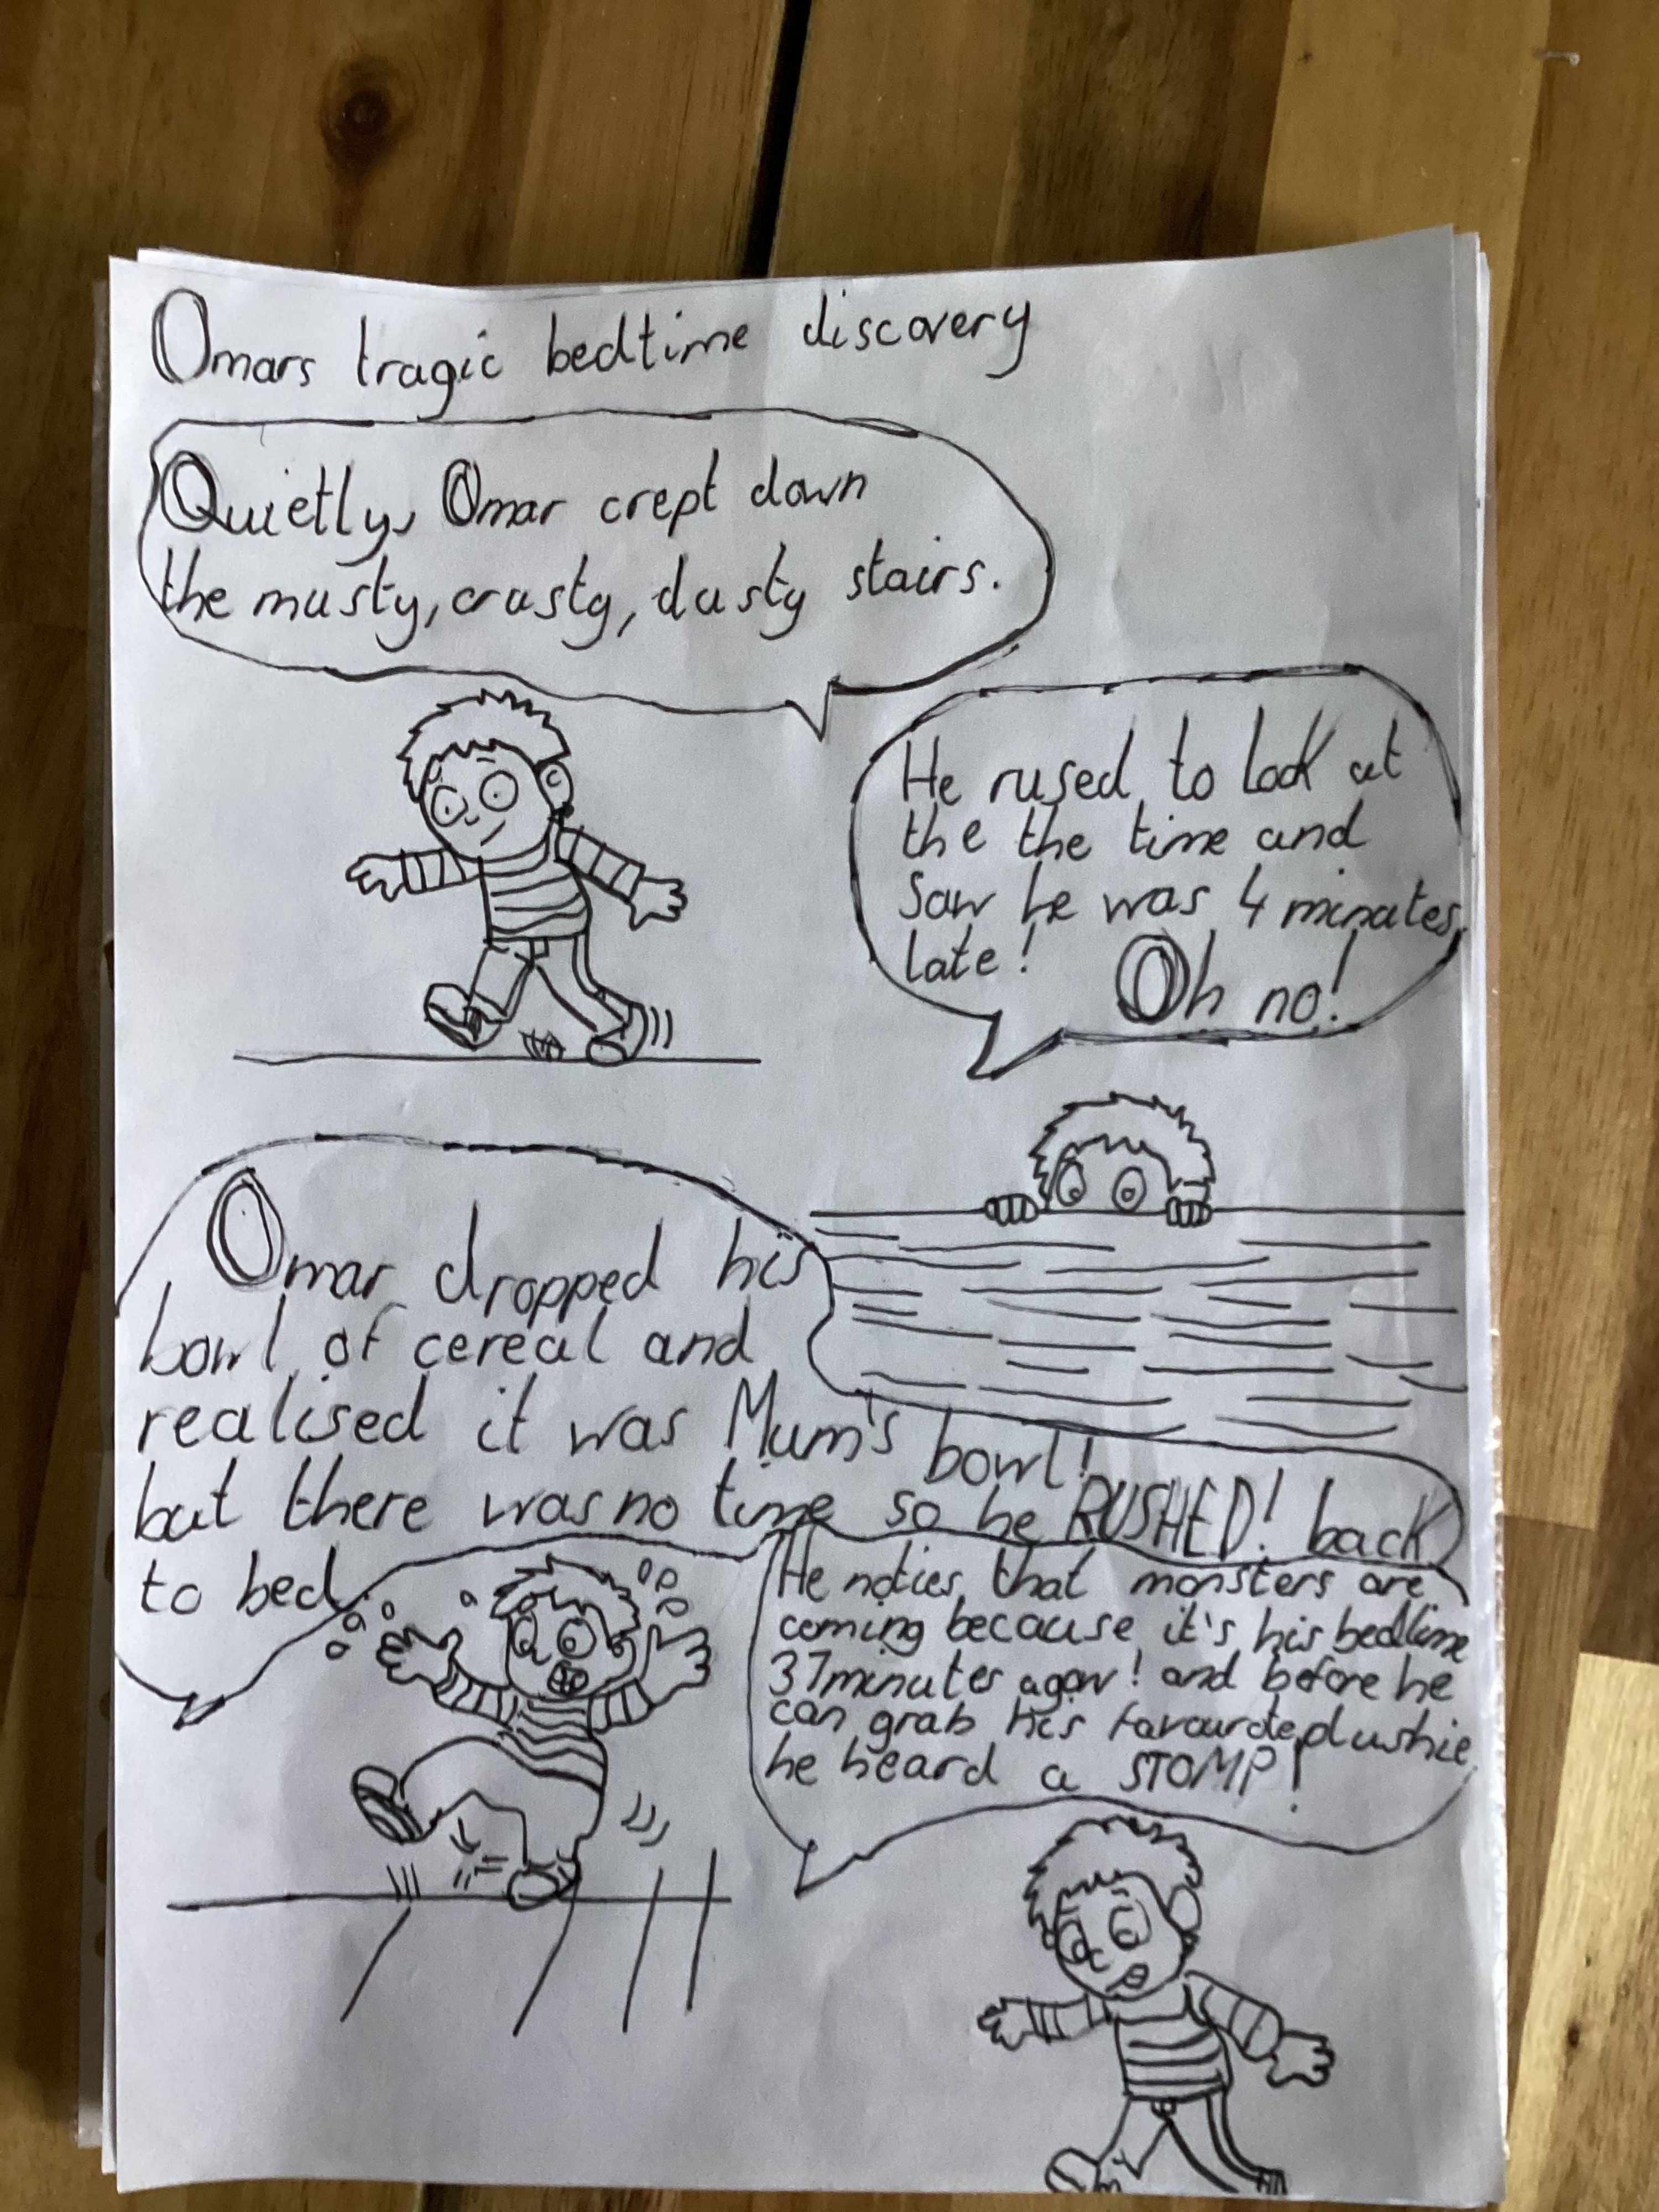 Omars tragic bedtime discovery
Quietly, Omar crept down
the musty, crusty, dusty stairs.
He rused to look at
the the time and
saw he was 4 minutes
late! Oh no!
Omar dropped his
bowl of cereal and
realised it was Mum's bowl!
but there was no time so he RUSHED! back
to bed
He noties that monsters are
coming because it's his bedtime
37minutes agow! and before he
can grab his favourote plushie
he heard a STOMP!